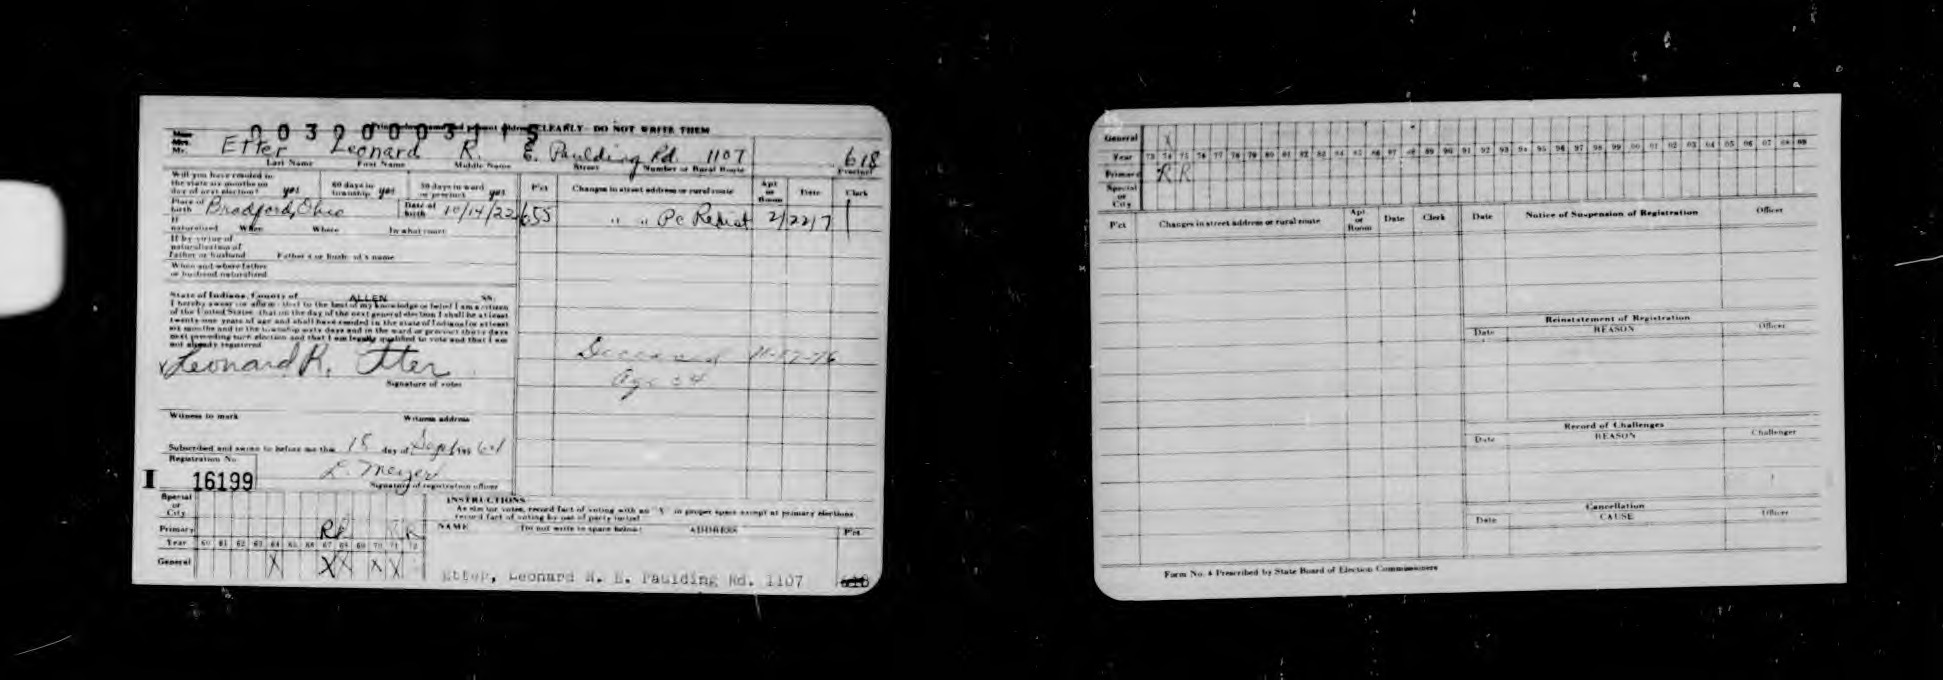 0032000311S
CLEARLY - DO NOT WRITE THEM
Mr. Etter Leonard R. E. Paulding Rd. 1107 618
Last Name First Name Middle Name Street Number or Rural Route Precinct
Will you have resided in the state six months on day of next election? yes 60 days in township yes 30 days in ward or precinct yes
Pct Changes in street address or rural route Apt or Room Date Clerk
Place of birth Bradford, Ohio Date of birth 10/14/22
655 " " Pc Redist 2/22/7
If naturalized When Where In what court
If by virtue of naturalization of Father or husband Father's or husband's name
When and where father or husband naturalized
State of Indiana, County of ALLEN SS:
I hereby swear (or affirm) that to the best of my knowledge or belief I am a citizen
of the United States, that on the day of the next general election I shall be at least
twenty-one years of age and shall have resided in the state of Indiana for at least
six months and in the township sixty days and in the ward or precinct thirty days
next preceding such election and that I am legally qualified to vote and that I am
not already registered.
Leonard R. Etter
Signature of voter
Deceased
Age 54
Witness to mark Witness address
Subscribed and sworn to before me this 15 day of Sept 19
Registration No.
L. Meyer
I 16199
Signature of registration officer
Special or City
Primary R R R
Year 60 61 62 63 64 65 66 67 68 69 70 71 72
General X X X X X
INSTRUCTIONS
As elector votes, record fact of voting with an "X" in proper space except at primary elections
record fact of voting by use of party initial
NAME Do not write in space below ADDRESS Pct.
Etter, Leonard R. E. Paulding Rd. 1107 618
General X
Year 73 74 75 76 77 78 79 80 81 82 83 84 85 86 87 88 89 90 91 92 93 94 95 96 97 98 99 00 01 02 03 04 05 06 07 08 09
Primary R R
Special or City
Pct Changes in street address or rural route Apt or Room Date Clerk
Date Notice of Suspension of Registration Officer
Reinstatement of Registration
Date REASON Officer
Record of Challenges
Date REASON Challenger
Cancellation
Date CAUSE Officer
Form No. 4 Prescribed by State Board of Election Commissioners